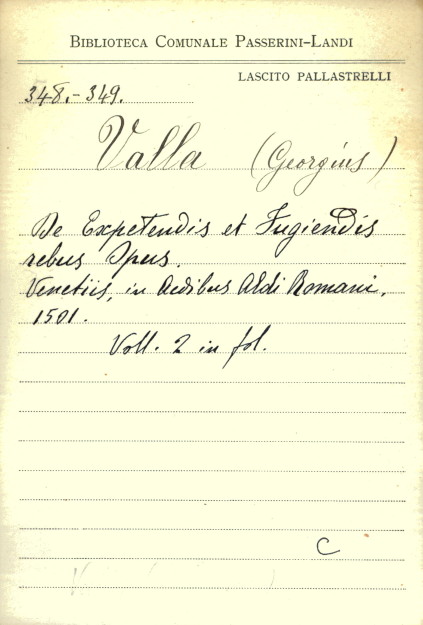 BIBLIOTECA COMUNALE PASSERINI-LANDI
LASCITO PALLASTRELLI
348.-349.
Valla (Georgius)
De Expetendis et Fugiendis
rebus Opus.
Venetiis, in Aedibus Aldi Romani.
1501.
Voll. 2 in fol.
C